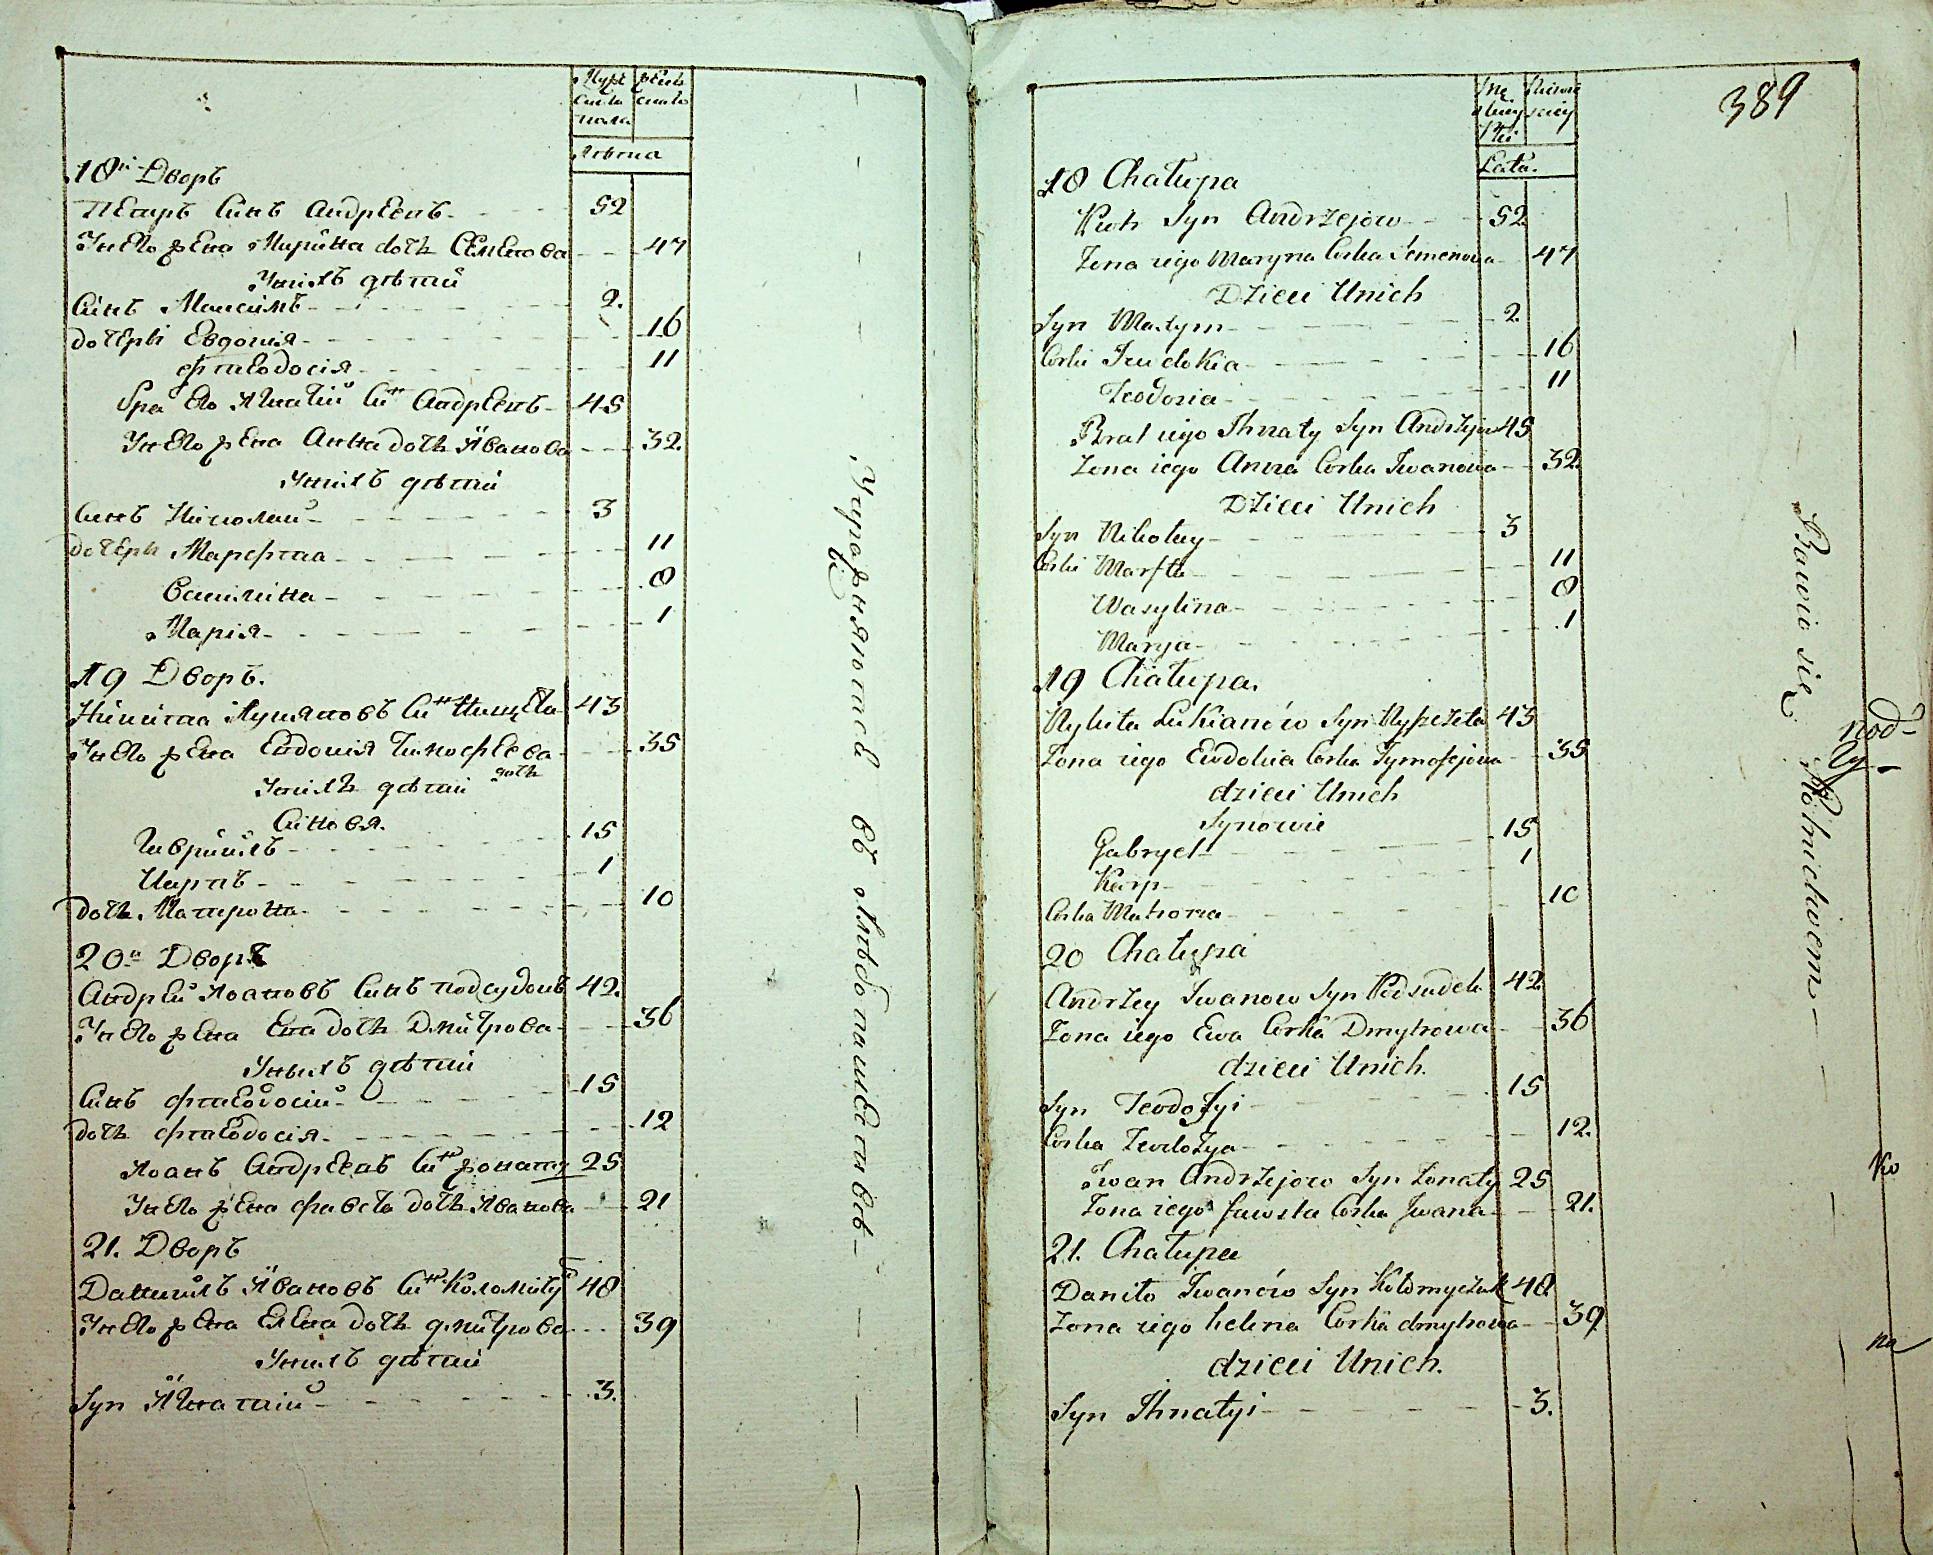 Мужеска пола
женска
Лѣта
18й Дворъ
Петръ Синъ Андреевъ 52
У него жена Марина дочь Семенова 47
У нихъ дѣтей
Синъ Максимъ 2.
дочери Евдокия 16
Фтеодосія 11
Бра его Игнатий Синъ Андреевъ 45
У него жена Анна дочь Иванова 32.
У нихъ дѣтей
Синъ Николай 3
дочери Марфта 11
Василина 8
Марія 1
19 Дворъ.
Никита Лукяновъ Синъ 43
У него жена Евдокія Тимофеева дочь 35
У нихъ дѣтей
Синовя.
Гавриилъ 15
Карпъ 1
дочь Матрона 10
20й Дворъ
Андрей Иоановъ Синъ подсудокъ 42.
У него жена Ева дочь Дмитрова 36
У нихъ дѣтей
Синъ Фтеодосий 15
дочь Фтеодосія 12
Иоанъ Андреевъ Синъ жонати 25
У него жена Фавста дочь Иванова 21
21. Дворъ
Даниилъ Ивановъ Синъ 48
У него жена Елена дочь дмитрова 39
У нихъ дѣтей
Syn Игнатий 3.
Упражняются въ хлѣбопашествѣ
389
Lata.
18 Chałupa
Piotr Syn Andrzejow 52
Zona iego Maryna Corka Semenowa 47
Dzieci Unich
Syn Maxym 2
Corki Iewdokia 16
Teodozia 11
Brat iego Ihnaty Syn Andrzejow 45
Zona iego Anna Corka Iwanowa 32.
Dzieci Unich
Syn Nikołay 3
Corki Marfta 11
Wasylina 8
Marya 1
19 Chałupa.
Nykita Łukianów Syn 43
Zona iego Ewdokia Corka Tymofejowa 35
dzieci Unich
Synowie
Gabryel 15
Karp 1
Corka Matrona 10
20 Chałupa
Andrzey Iwanow Syn Podsudek 42
Zona iego Ewa Corka Dmytrowa 36
dzieci Unich.
Syn Teodozyi 15
Corka Teodozya 12.
Iwan Andrzejow Syn Zonaty 25
Zona iego Fawsta Corka Iwana 21.
21. Chałupa
Daniło Iwanów Syn Kołomyczuk 48
Zona iego helena Corka dmytrowa 39
dzieci Unich.
Syn Ihnatyi 3.
Bawio się Rolnictwem